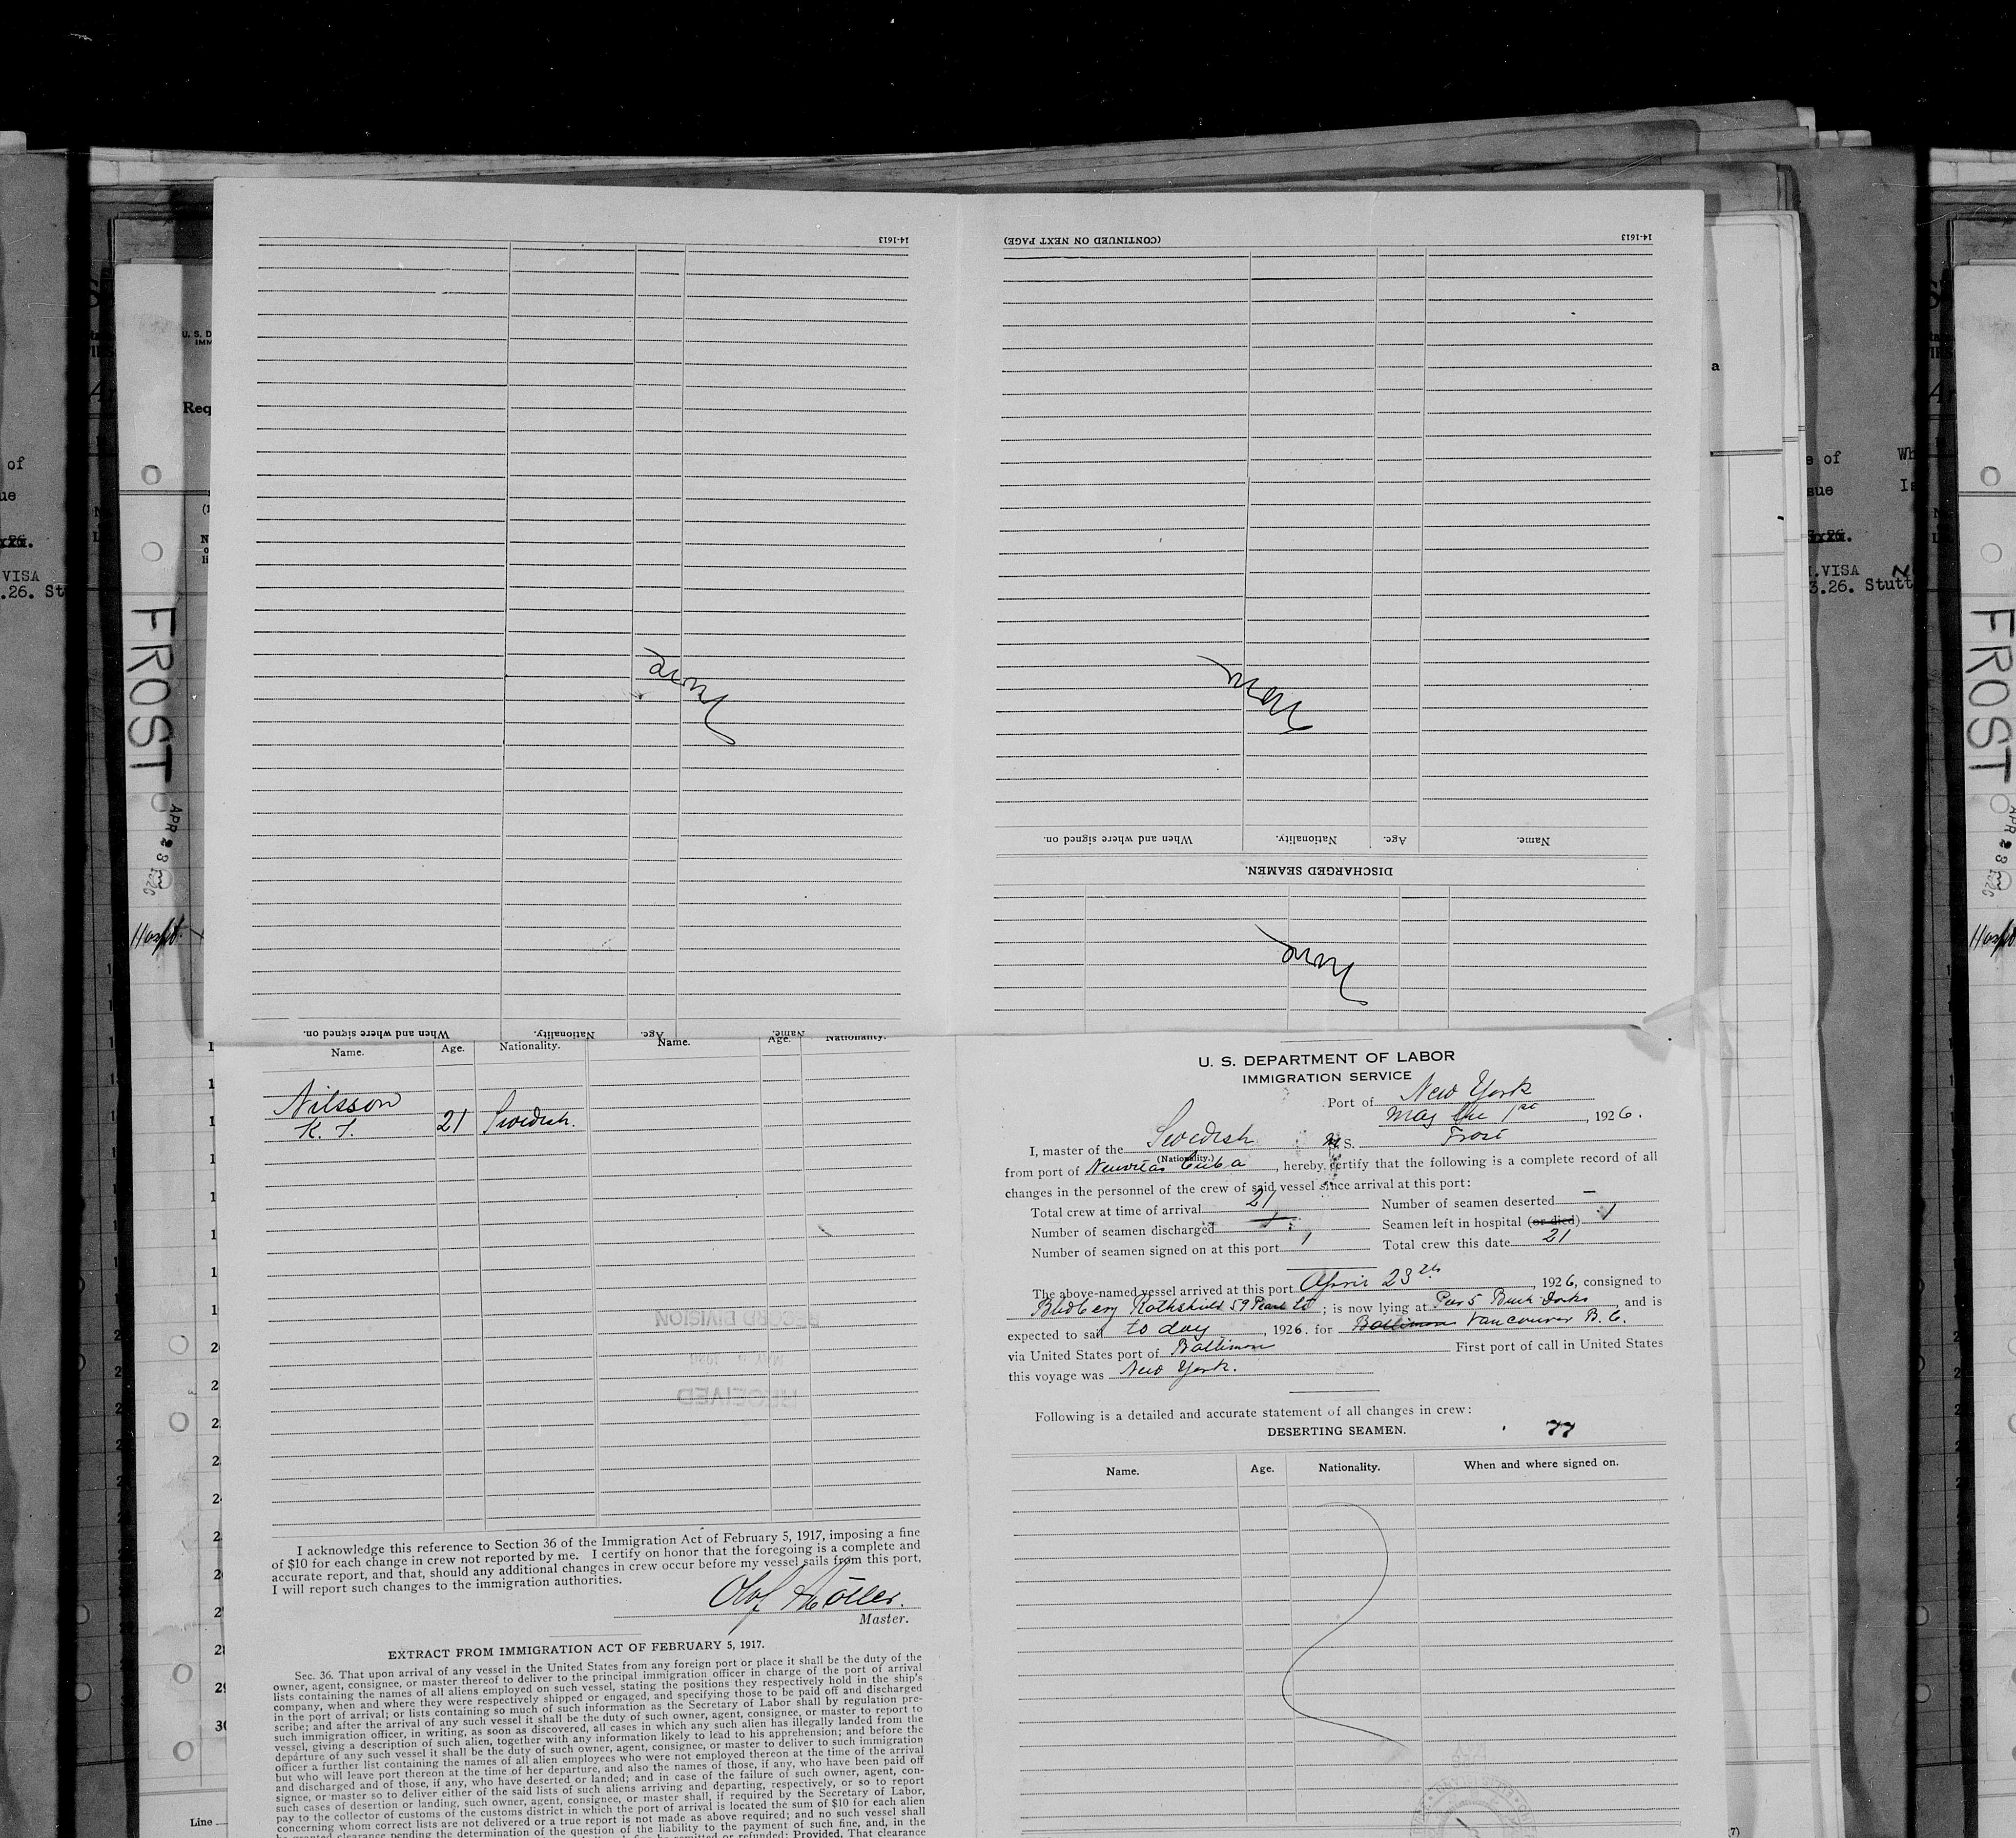 14-1613
(CONTINUED ON NEXT PAGE)
14-1613
None
None
When and where signed on.
Nationality.
Age.
Name.
DISCHARGED SEAMEN.
None
When and where signed on.
Nationality.
Age.
Name.
Name.
Age.
Nationality.
Name.
Age.
Nationality.
Nilsson
K. F. 21 Swedish.
RECORD DIVISION
RECEIVED
I acknowledge this reference to Section 36 of the Immigration Act of February 5, 1917, imposing a fine
of $10 for each change in crew not reported by me. I certify on honor that the foregoing is a complete and
accurate report, and that, should any additional changes in crew occur before my vessel sails from this port,
I will report such changes to the immigration authorities.
Olof
Master.
EXTRACT FROM IMMIGRATION ACT OF FEBRUARY 5, 1917.
Sec. 36. That upon arrival of any vessel in the United States from any foreign port or place it shall be the duty of the
owner, agent, consignee, or master thereof to deliver to the principal immigration officer in charge of the port of arrival
lists containing the names of all aliens employed on such vessel, stating the positions they respectively hold in the ship's
company, when and where they were respectively shipped or engaged, and specifying those to be paid off and discharged
in the port of arrival; or lists containing so much of such information as the Secretary of Labor shall by regulation pre-
scribe; and after the arrival of any such vessel it shall be the duty of such owner, agent, consignee, or master to report to
such immigration officer, in writing, as soon as discovered, all cases in which any such alien has illegally landed from the
vessel, giving a description of such alien, together with any information likely to lead to his apprehension; and before the
departure of any such vessel it shall be the duty of such owner, agent, consignee, or master to deliver to such immigration
officer a further list containing the names of all alien employees who were not employed thereon at the time of the arrival
but who will leave port thereon at the time of her departure, and also the names of those, if any, who have been paid off
and discharged and of those, if any, who have deserted or landed; and in case of the failure of such owner, agent, con-
signee, or master so to deliver either of the said lists of such aliens arriving and departing, respectively, or so to report
such cases of desertion or landing, such owner, agent, consignee, or master shall, if required by the Secretary of Labor,
pay to the collector of customs of the customs district in which the port of arrival is located the sum of $10 for each alien
concerning whom correct lists are not delivered or a true report is not made as above required; and no such vessel shall
be granted clearance pending the determination of the question of the liability to the payment of such fine, and, in the
U. S. DEPARTMENT OF LABOR
IMMIGRATION SERVICE
Port of New York
May the 1st, 1926.
I, master of the Swedish M S. Frost
(Nationality.)
from port of Nuevitas Cuba, hereby certify that the following is a complete record of all
changes in the personnel of the crew of said vessel since arrival at this port:
Total crew at time of arrival 21 Number of seamen deserted –
Number of seamen discharged Seamen left in hospital (or died) 1
Number of seamen signed on at this port 1 Total crew this date 21
The above-named vessel arrived at this port April 23th, 1926, consigned to
Rothshild 59 Pearl St; is now lying at Pier 5 Bush Docks and is
expected to sail to day, 1926. for Baltimore Vancouver B. C.
via United States port of Baltimore First port of call in United States
this voyage was New York.
Following is a detailed and accurate statement of all changes in crew:
DESERTING SEAMEN. 77
Name. Age. Nationality. When and where signed on.
FROST
APR 28 1926
Hospit.
U. S. D
IMM
Req
Line
of
ue
VISA
.26. St
e of
sue
VISA
3.26. Stutt
Wh
Is
FROST
APR 28 1926
Hospit